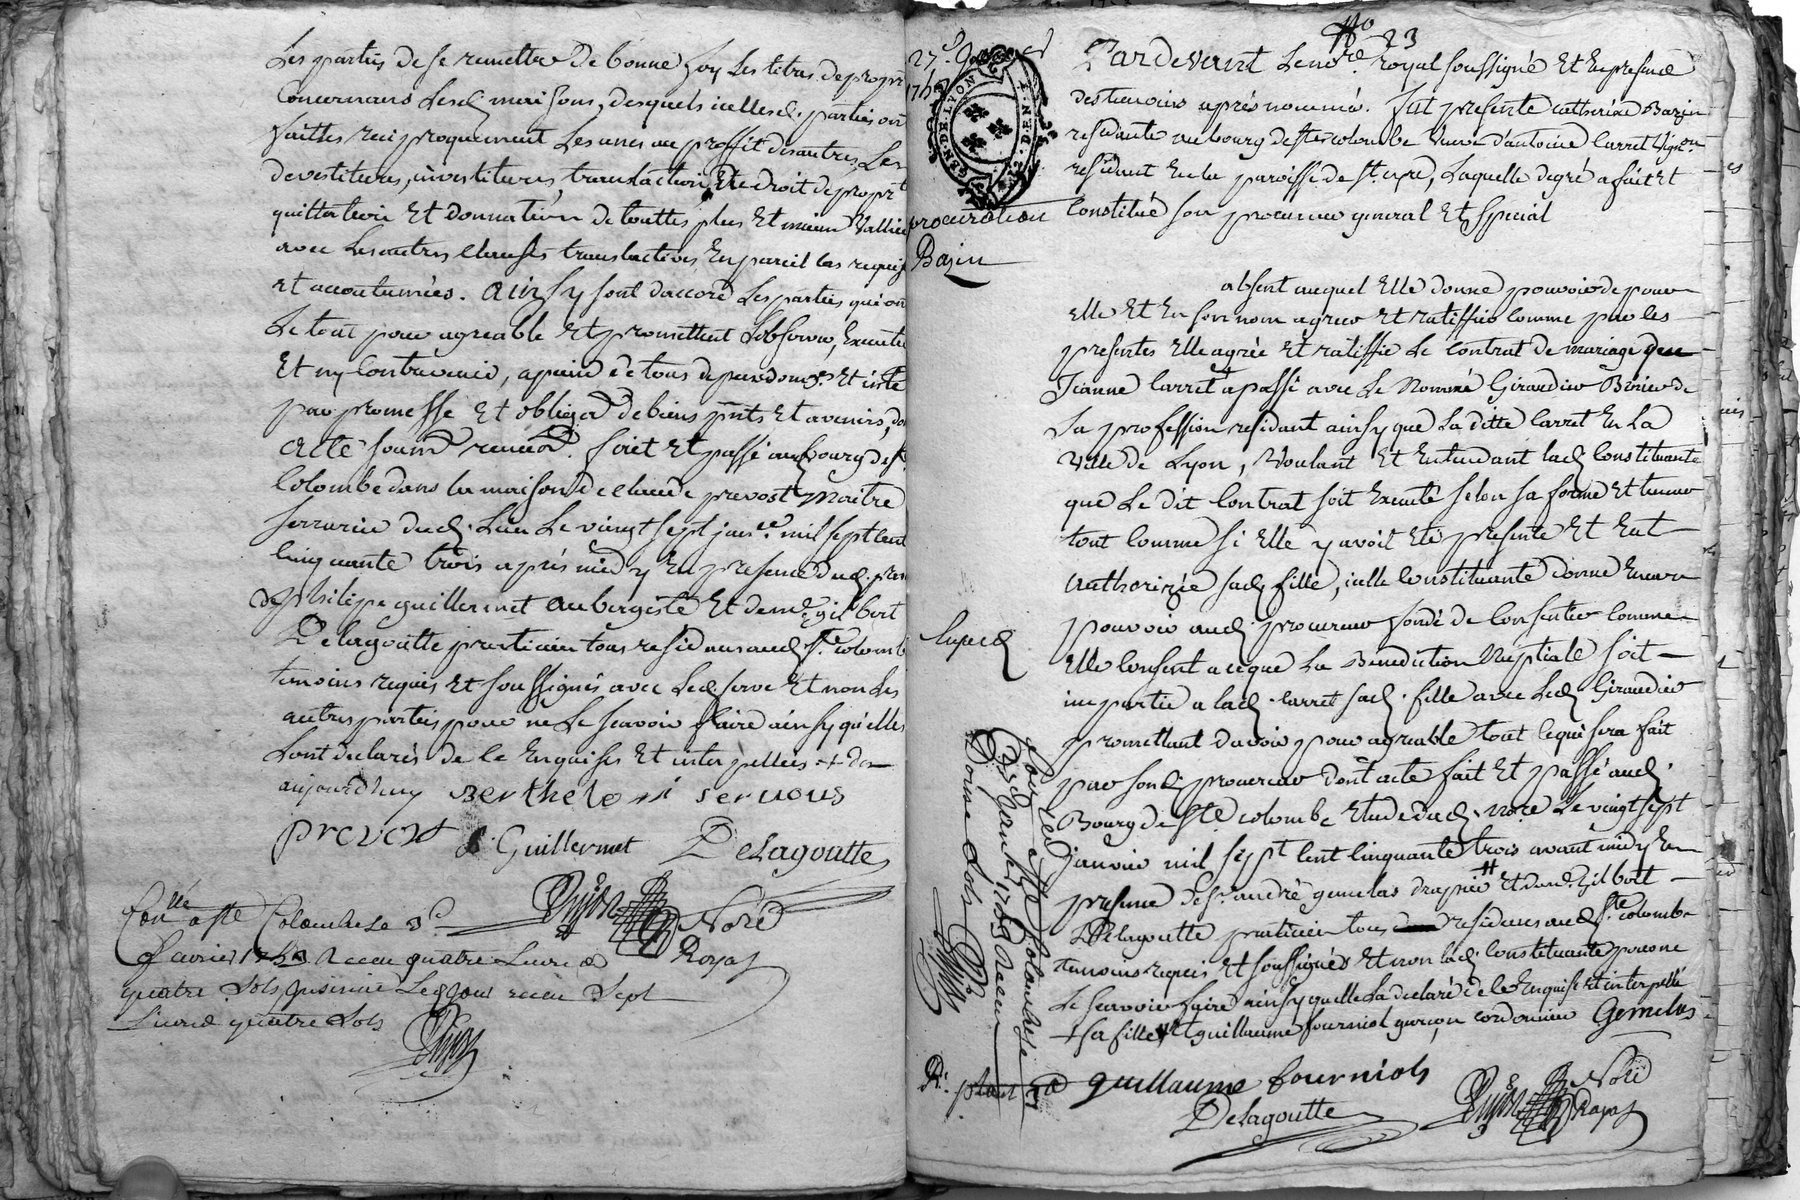 Les parties de se remettre de bonne foy Les titres de propr
Concernans Lesd. maisons, desquels icelles d. parties ont
faittes reciproquement Les unes au proffit des autres, Les
devestitures, investitures, translaction, Et de droit de propr
quittation Et donnation de touttes plus Et mieux Vallüe
avec Les autres clauses translactives, En pareil cas requis
et accoutumées. ainsy sont daccord Les parties qui ont
Le tout pour agreable Et promettent Lobserver, Executer
Et ny Contrevenir, a peine de tous depens dom. Et inté
par promesse Et obligaõn de biens pñts Et avenirs, do
acte soum renoñ. fait Et passé aud. bourg de S.
Colombe dans La maison de claude prevost Maitre
serrurier dud. Lieu Le vingt sept janv. mil sept cent
Cinquante trois après midy En presence dud. prev
de philipe guillermet aubergiste Et de m. gilbert
Delagoutte praticien tous residans aud. Ste. colomb
temoins requis Et soussignés avec Led. serve Et non Les
autres parties pour ne Le scavoir faire ainsy qu'elles
L'ont déclarés de ce Enquises Et interpellées +
aujourd'huy Berthelo servous
prevost Guillermet Delagoutte
Con.lé a Ste Colombe le 3e.
fevrier 1753 Receu quatre Livres
quatre sols
Livres quatre sols
Noré
Royal
No. 23
27.
1753
GEN. DE LYON
procuration
Bazin
Pardevant Le nore. royal soussigné Et En presence
des temoins après nommés. fut presente catherine Bazin
residante au bourg de Ste colombe Veuve d'antoine Carret Vigneron
residant En la paroisse de St. cyre, Laquelle de gré a fait Et
Constitué son procureur general Et special
absent auquel Elle donne pouvoir de pour
elle Et En son nom agreer Et ratiffier comme par les
presentes Elle agrée Et ratiffie Le contrat de mariage que
Jeanne Carret a passé avec Le Nommé Giraudier
Sa profession residant ainsy que La ditte Carret En La
Ville de Lyon, Voulant Et Entendant lad. Constituante
que Le dit Contrat soit Executé selon sa forme Et teneur
tout Comme si Elle y avoit Eté presente Et Eut
authorizée sad. fille, icelle Constituante donne Encore
pouvoir aud. procureur fondé de Consentir comme
Elle Consent a ceque La Benediction Nuptiale soit
impartie a lad. Carret sad. fille avec Led. Giraudier
promettant davoir pour agreable tout ce qui sera fait
par sond. procureur dont acte fait Et passé aud.
Bourg de Ste colombe Etude dud. nore Le vingt sept
janvier mil sept Cent Cinquante trois avant midy En
presence de Sr. andré gemelas drapier Et de m. Gilbert
Delagoutte praticien tous residens aud. Ste. colombe
temoins requis Et soussignés Et non lad. Constituante pour ne
Le scavoir faire ainsy quelle La declaré de ce Enquise Et interpellé
+ sa fille Et guillaume fourniol garçon cordonnier Gemelas
guillaume fourniols
Delagoutte
Noré
Royal
Exped.
Con.lé a Ste Colombe le
Janvier 1753 Receu
Douze Sols